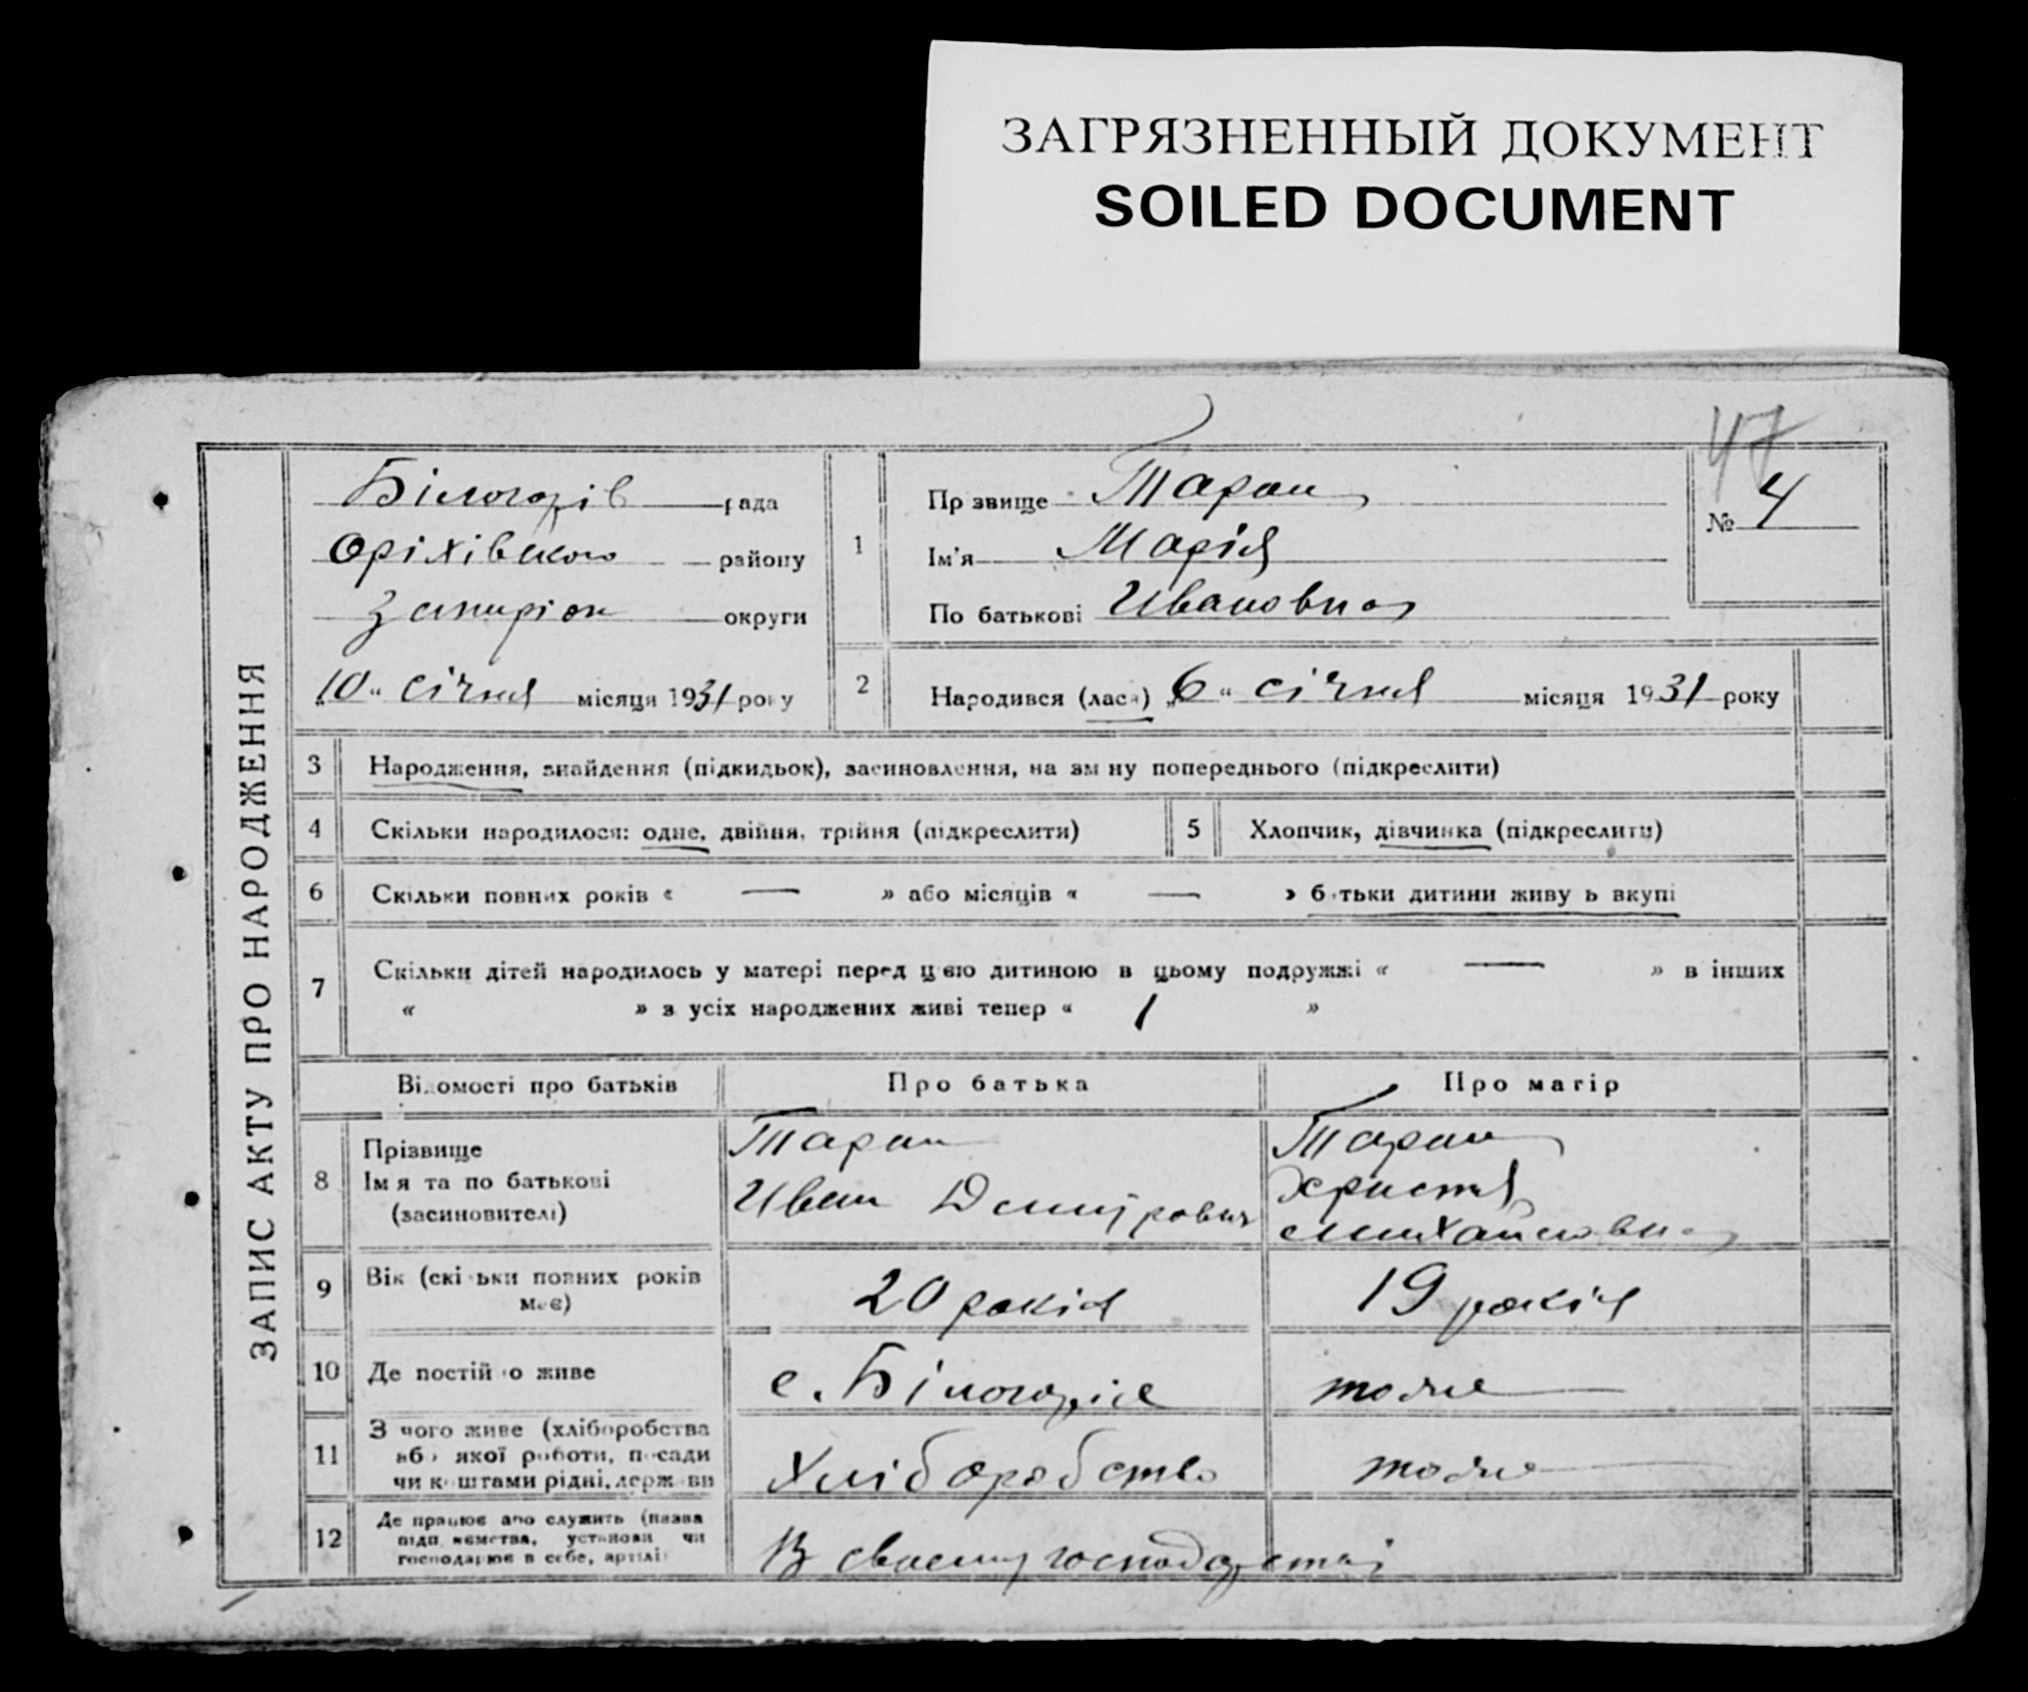 ЗАГРЯЗНЕННЫЙ ДОКУМЕНТ
SOILED DOCUMENT
47
№ 4
ЗАПИС АКТУ ПРО НАРОДЖЕННЯ
Білогорів рада
Оріхівського району
округи
„10“ січня місяця 1931 року
1
Прізвище Таран
Ім'я Марія
По батькові Ивановна
2 Народився (лася) „6“ січня місяця 1931 року
3 Народження, знайдення (підкидьок), засиновлення, на зміну попереднього (підкреслити)
4 Скільки народилося: одне, двійня, трійня (підкреслити) 5 Хлопчик, дівчинка (підкреслити)
6 Скільки повних років « — » або місяців « — » батьки дитини живуть вкупі
7 Скільки дітей народилось у матері перед цією дитиною в цьому подружжі « — » в інших
« » з усіх народжених живі тепер « 1 »
Відомості про батьків Про батька Про матір
8 Прізвище
Ім'я та по батькові
(засиновителі)
Таран
Иван Демитрович
Таран
Христя
Михайловна
9 Вік (скільки повних років
має)
20 років
19 років
10 Де постійно живе с. Білогоріє тоже
11 З чого живе (хліборобства
або якої роботи, посади
чи коштами рідні, держави
Хліборобство тоже
12 Де працює або служить (назва
підприємства, установи чи
господарює в себе, артілі
В своему господарстві